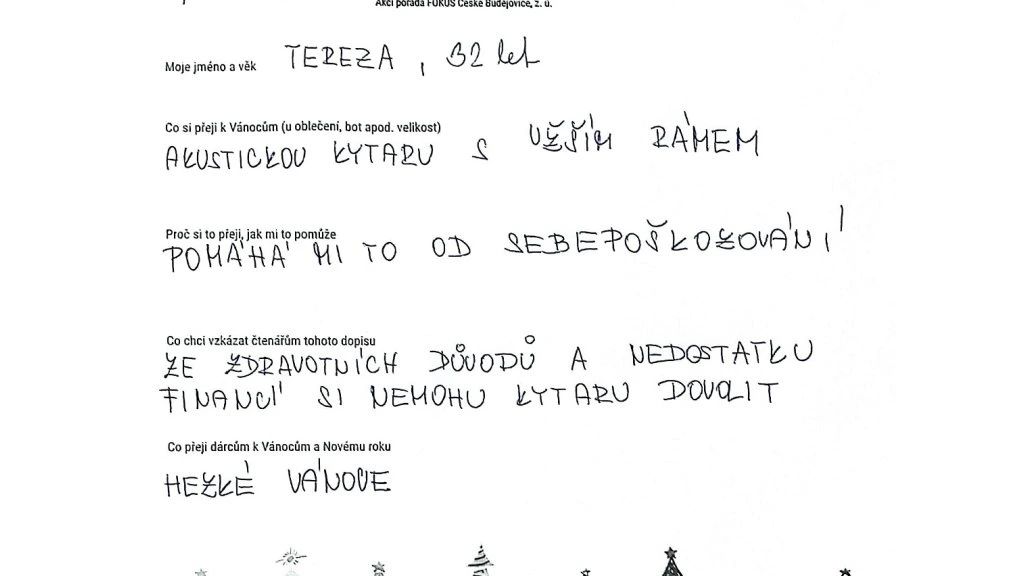 Akci pořádá FOKUS České Budějovice, z. ú.
Moje jméno a věk TEREZA , 32 let
Co si přeji k Vánocům (u oblečení, bot apod. velikost)
AKUSTICKOU KYTARU S UŽŠÍM RÁMEM
Proč si to přeji, jak mi to pomůže
POMÁHÁ MI TO OD SEBEPOŠKOZOVÁNÍ
Co chci vzkázat čtenářům tohoto dopisu
ZE ZDRAVOTNÍCH DŮVODŮ A NEDOSTATKU
FINANCÍ SI NEMOHU KYTARU DOVOLIT
Co přeji dárcům k Vánocům a Novému roku
HEZKÉ VÁNOCE